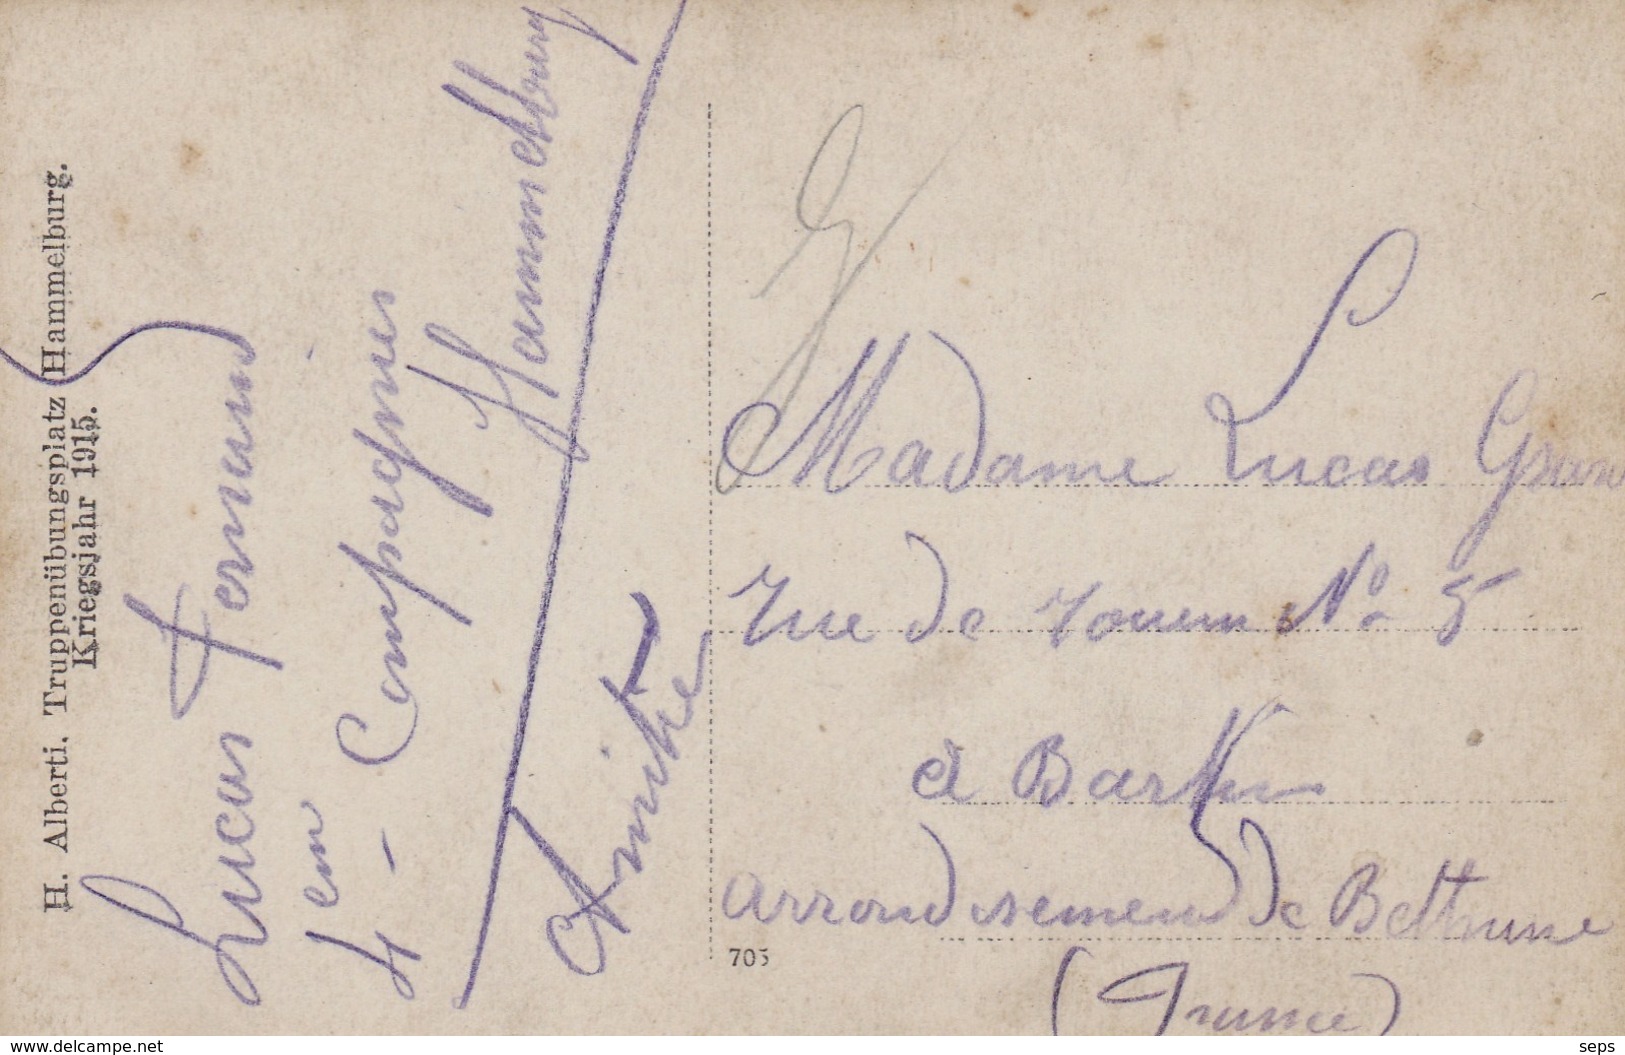 H. Alberti. Truppenübungsplatz Hammelburg.
Kriegsjahr 1915.
Lucas Fernand
4em Compagnies
Hammelburg
Amitié
Madame Lucas
rue de Rouen No 5
a Barlin
arrondissement de Bethune
(France)
705
www.delcampe.net
seps